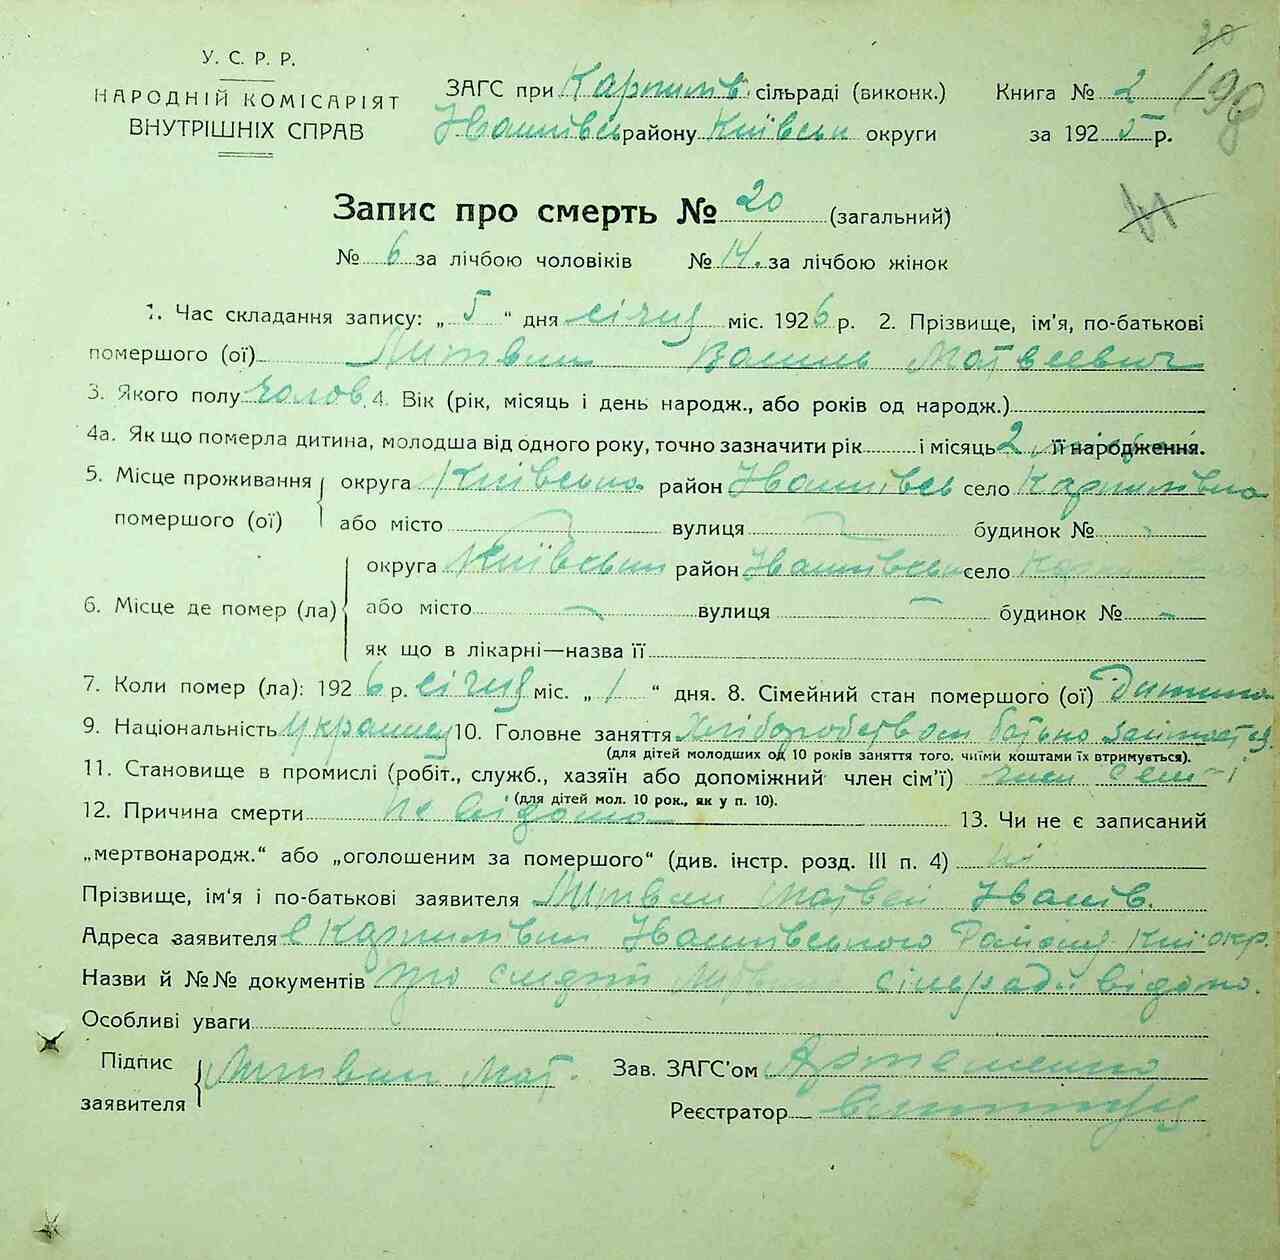 20
198
У. С. Р. Р.
НАРОДНІЙ КОМІСАРІЯТ
ВНУТРІШНІХ СПРАВ
ЗАГС при Карпилів. сільраді (виконк.)
Іванківськ району Київськ округи
Книга № 2
за 1925 р.
Запис про смерть № 20 (загальний)
№ 6 за лічбою чоловіків № 14. за лічбою жінок
1. Час складання запису: „ 5 “ дня січня міс. 1926 р. 2. Прізвище, ім'я, по-батькові
помершого (ої) Литвин Василь Матвеевич
3. Якого полу Чолов. 4. Вік (рік, місяць і день народж., або років од народж.)
4а. Як що померла дитина, молодша від одного року, точно зазначити рік і місяць 2 її народження.
5. Місце проживання помершого (ої) округа Київська район Іванківськ село Карпилівка
або місто вулиця будинок №
6. Місце де помер (ла) округа Київськ район Іванківськ село
або місто вулиця будинок №
як що в лікарні—назва її
7. Коли помер (ла): 1926 р. січня міс. „ 1 “ дня. 8. Сімейний стан помершого (ої) Дитина
9. Національність Украінец 10. Головне заняття Хліборобством батько займаєтся
(для дітей молодших од 10 років заняття того, чиїми коштами їх втримується).
11. Становище в промислі (робіт., служб., хазяїн або допоміжний член сім'ї) член семї
(для дітей мол. 10 рок., як у п. 10).
12. Причина смерти Не відома 13. Чи не є записаний
„мертвонародж.“ або „оголошеним за помершого“ (див. інстр. розд. III п. 4) ні
Прізвище, ім'я і по-батькові заявителя Литвин Матвей Іванів.
Адреса заявителя с Карпилівки Іванківського Району Киї окр.
Назви й №№ документів про смерть сільраді відомо.
Особливі уваги
Підпис заявителя Литвин Мат.
Зав. ЗАГС'ом Артеменко
Реєстратор